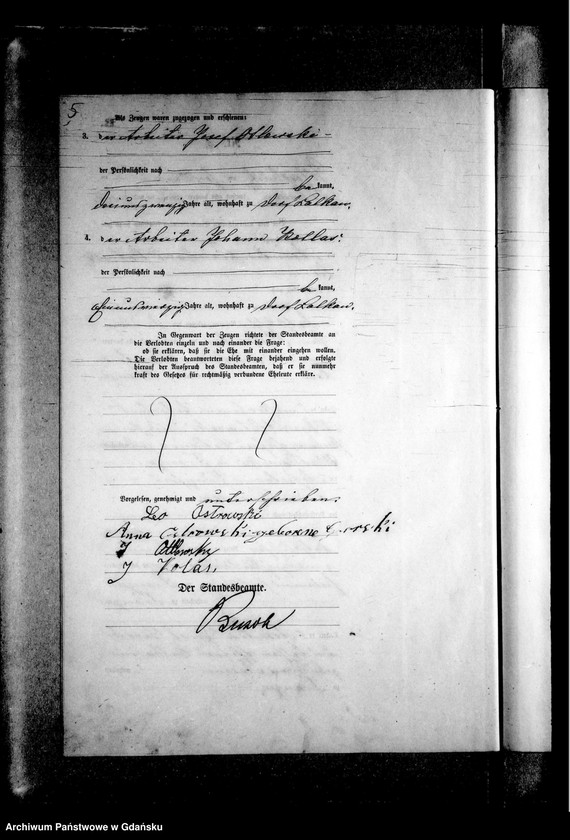 5
Als Zeugen waren zugezogen und erschienen:
3. der Arbeiter Josef Otlewski
der Persönlichkeit nach
be kannt,
dreiundzwanzig Jahre alt, wohnhaft zu Dorf Lalkau.
4. der Arbeiter Johann Kollas.
der Persönlichkeit nach
be kannt,
Jahre alt, wohnhaft zu Dorf Lalkau.
In Gegenwart der Zeugen richtete der Standesbeamte an
die Verlobten einzeln und nach einander die Frage:
ob sie erklären, daß sie die Ehe mit einander eingehen wollen.
Die Verlobten beantworteten diese Frage bejahend und erfolgte
hierauf der Ausspruch des Standesbeamten, daß er sie nunmehr
kraft des Gesetzes für rechtmäßig verbundene Eheleute erkläre.
Vorgelesen, genehmigt und unterschrieben:
Leo Ostrowski
Anna Ostrowski geborne
J
J Kolas.
Der Standesbeamte.
Archiwum Państwowe w Gdańsku